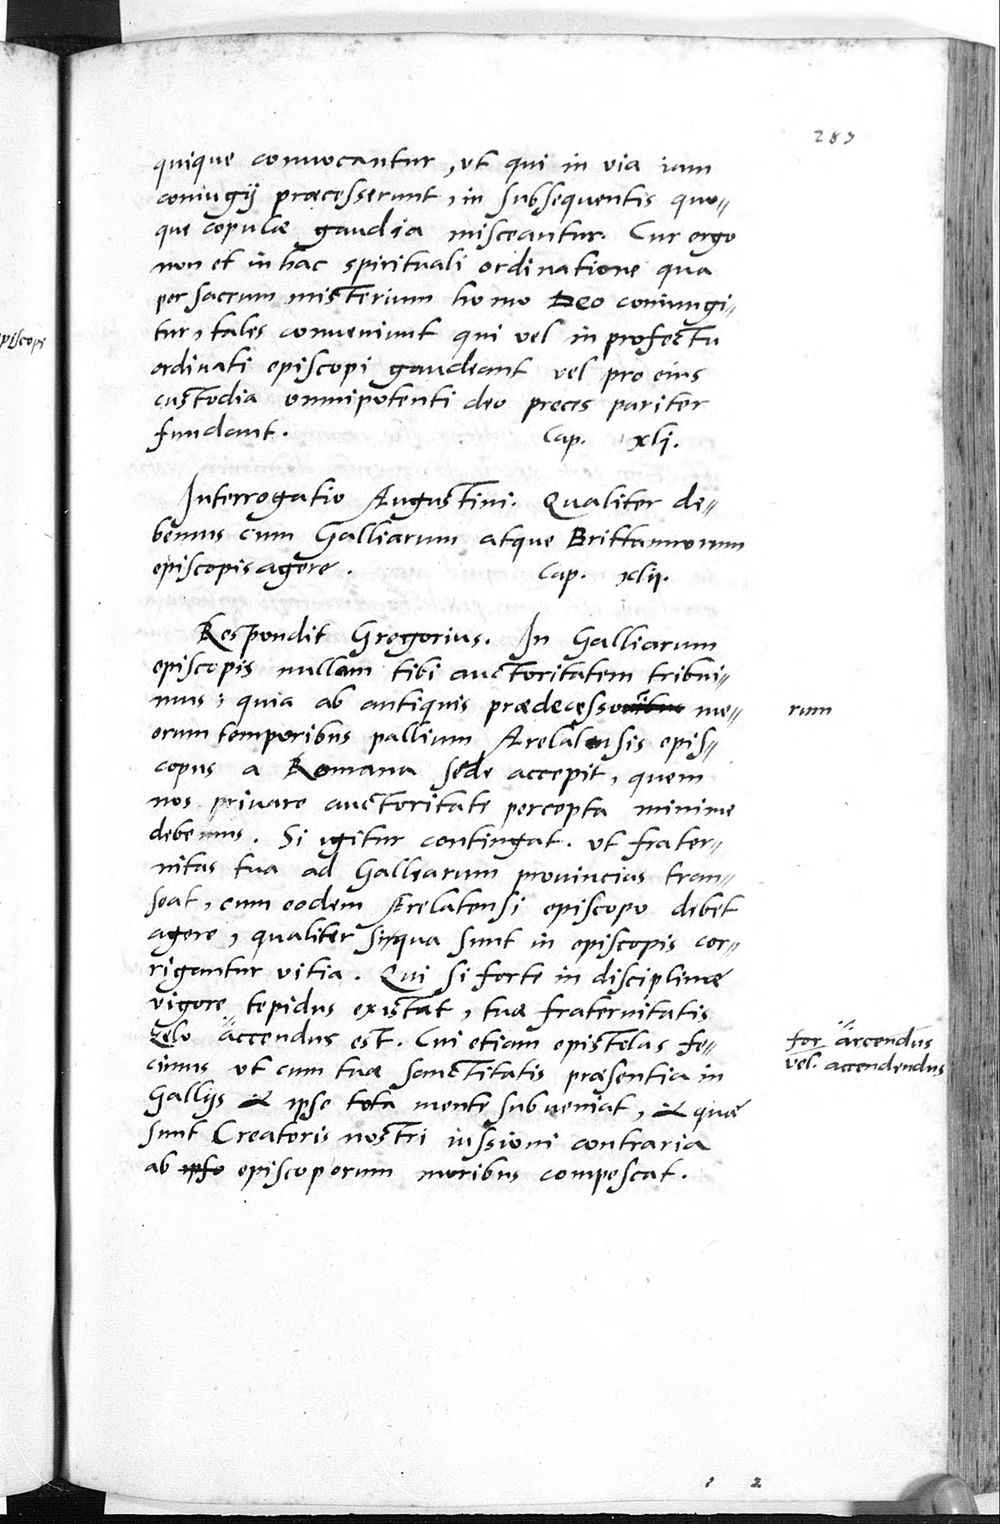 283
quique conuocantur, vt qui in via iam
coniugij præcesserunt, in subsequentis quo„
que copulæ gaudia misceantur. Cur ergo
non et in hac spirituali ordinatione qua
per sacrum misterium homo Deo coniungi„
tur, tales conueniunt qui vel in profectu
ordinati episcopi gaudeant vel pro eius
custodia omnipotenti deo preces pariter
fundant. Cap. xlj.
Interrogatio Augustini. Qualiter de„
bemus cum Galliarum atque Brittannorum
episcopis agere. Cap. xlij.
Respondit Gregorius. In Galliarum
episcopis nullam tibi auctoritatem tribui„
mus; quia ab antiquis prædecessoribus me„ rum
orum temporibus pallium Arelatensis epis„
copus a Romana sede accepit, quem
nos priuare auctoritate percepta minime
debemus. Si igitur contingat. vt frater„
nitas tua ad Galliarum prouincias tran„
seat, cum eodem Arelatensi episcopo debet
agere, qualiter siqua sunt in episcopis cor„
rigantur vitia. Qui si forte in disciplinæ
vigore tepidus existat, tuæ fraternitatis
zelo accendus est. Cui etiam epistolas fe„ for arcendus
cimus vt cum tuæ sanctitatis præsentia in vel. accendendus
Gallijs & ipse tota mente subueniat, & quæ
sunt Creatoris nostri iussioni contraria
ab ipso episcoporum moribus compescat.
episcopi
1 2